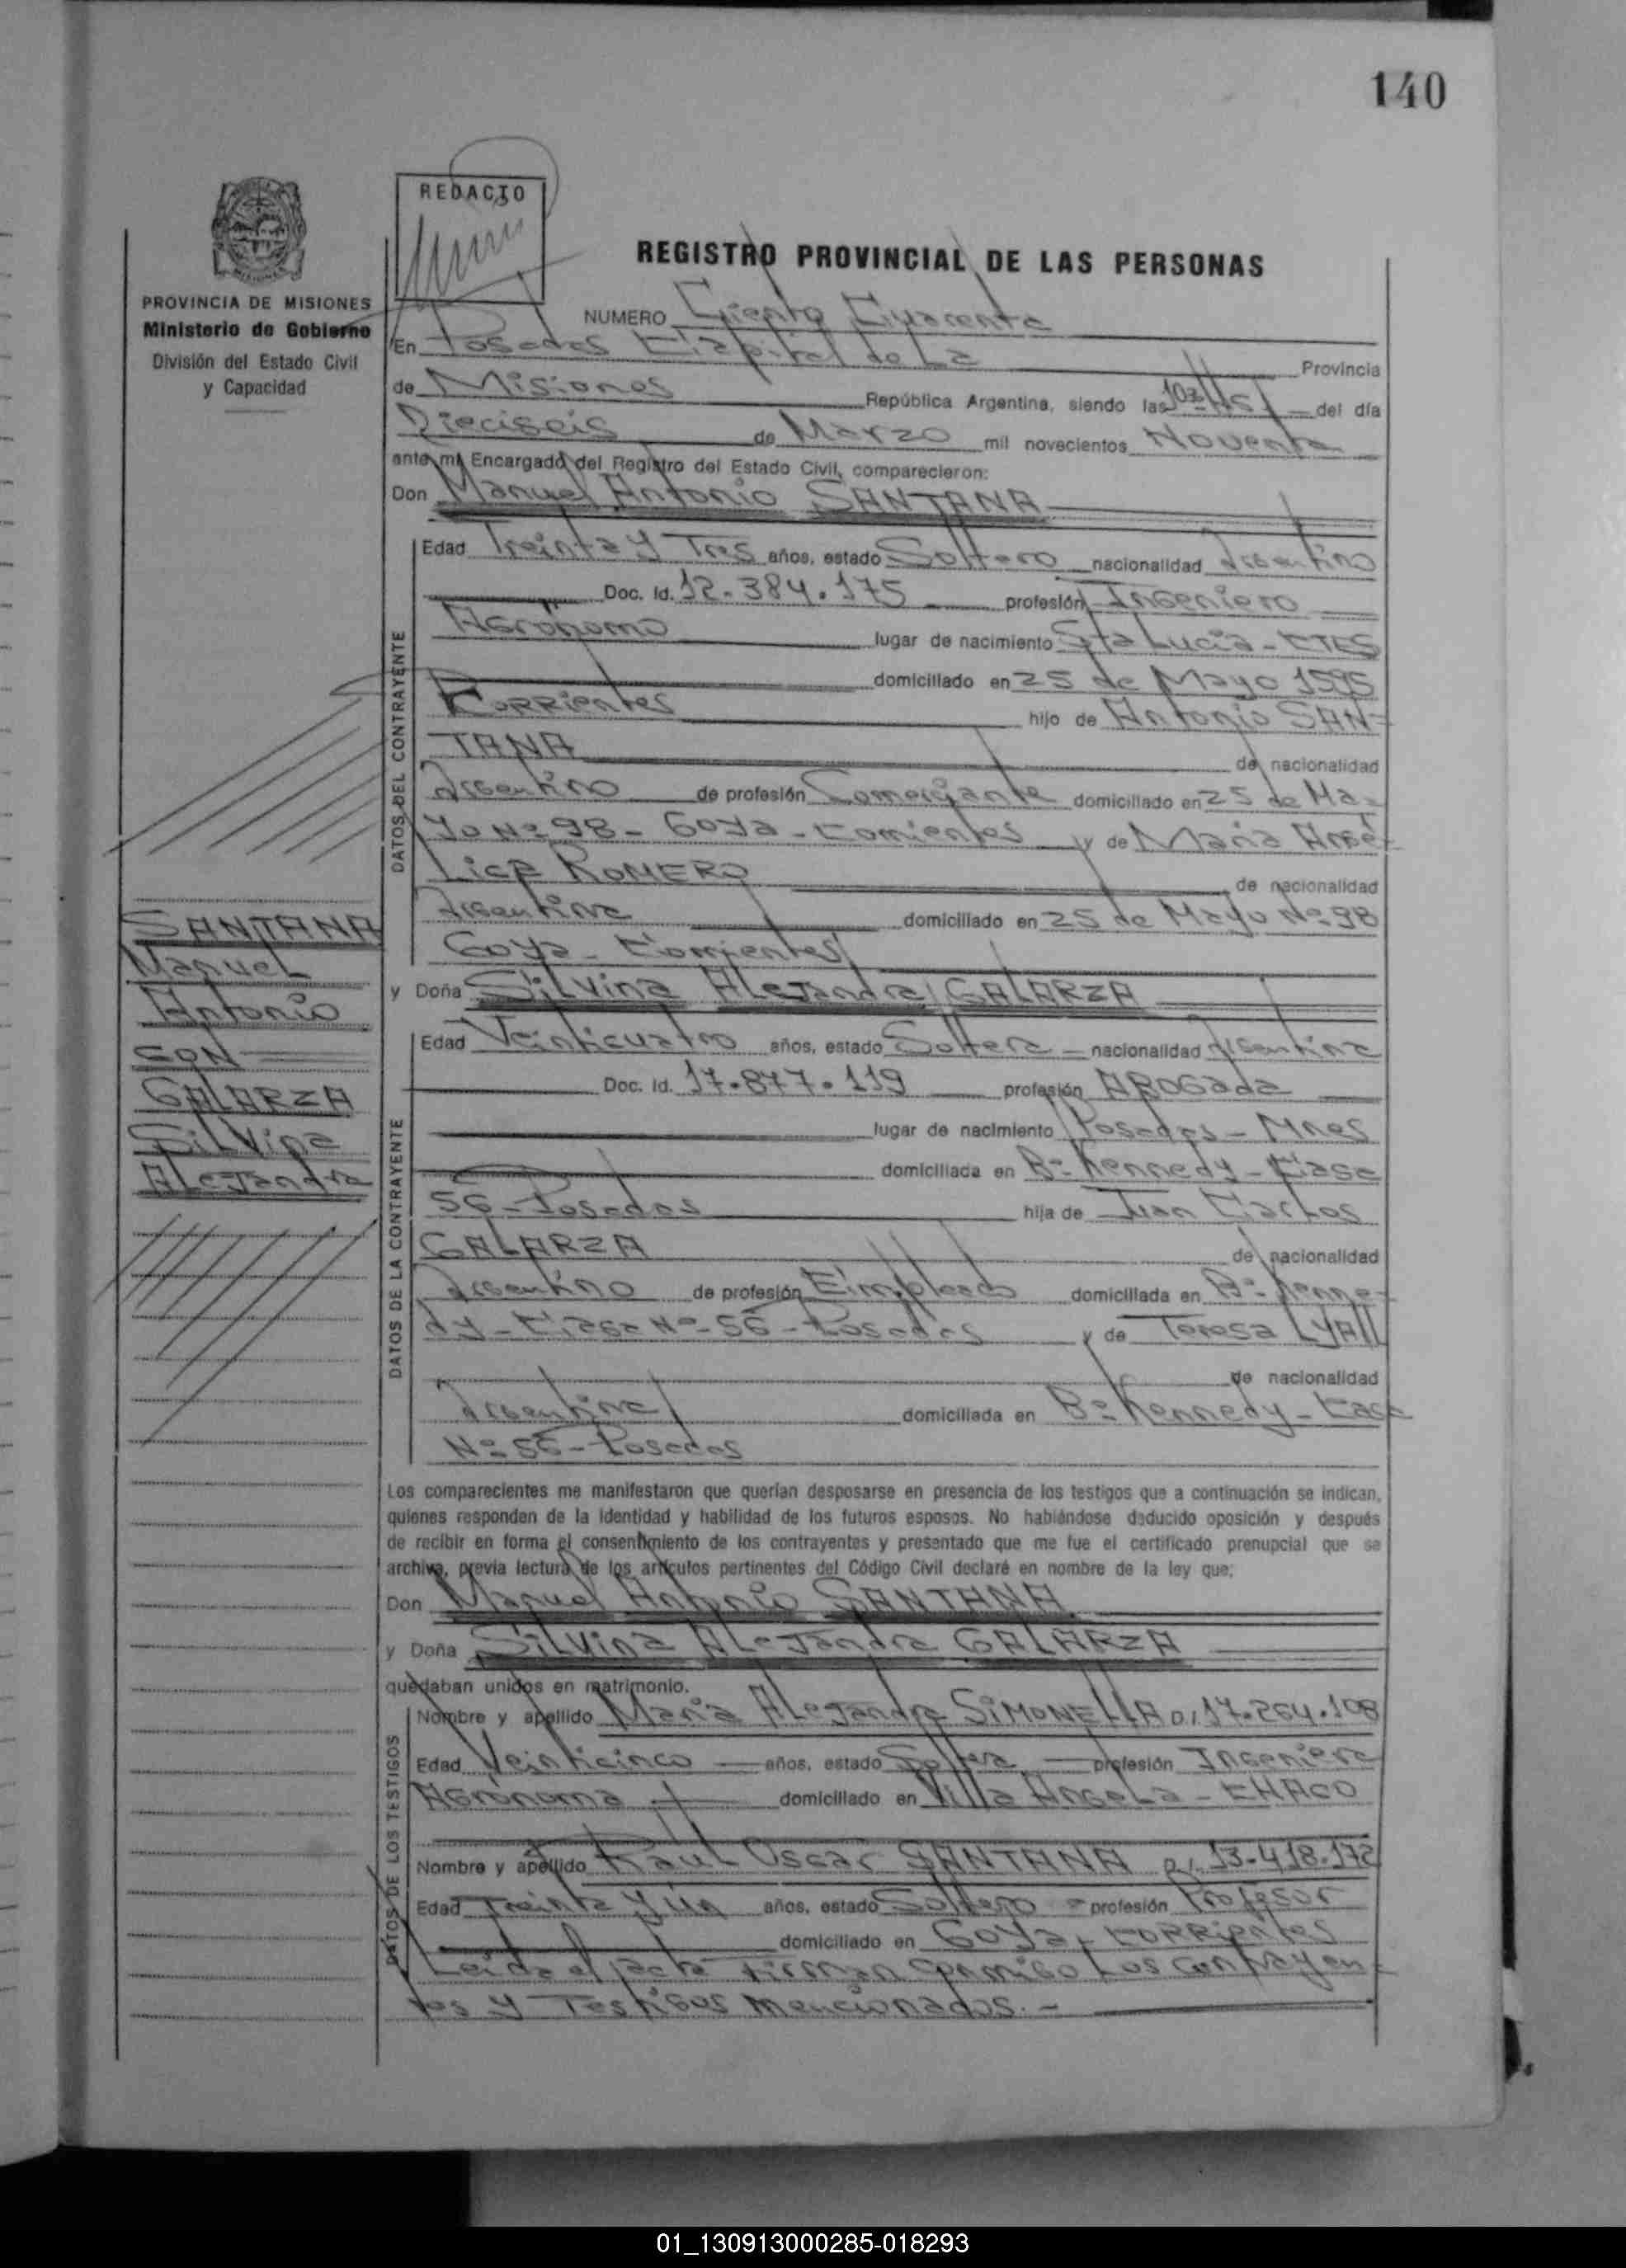 140
REDACTO
REGISTRO PROVINCIAL DE LAS PERSONAS
PROVINCIA DE MISIONES
Ministerio de Gobierno
División del Estado Civil
y Capacidad
NUMERO Ciento Cuarenta
En Posadas Capital de La Provincia
de Misiones República Argentina, siendo las del día
Dieciseis de Marzo mil novecientos Noventa
ante mi Encargado del Registro del Estado Civil, comparecieron:
Don Manuel Antonio SANTANA
DATOS DEL CONTRAYENTE
Edad Treinta y Tres años, estado Soltero nacionalidad Argentino
Doc. Id. 12.384.175 profesión Ingeniero
Agrónomo lugar de nacimiento Sta Lucia - CTES
domiciliado en 25 de Mayo 1595
Corrientes hijo de Antonio SAN-
TANA de nacionalidad
Argentino de profesión Comerciante domiciliado en 25 de Ma-
yo Nº 98 - Goya - Corrientes y de Maria Angé-
Lica ROMERO de nacionalidad
Argentina domiciliado en 25 de Mayo Nº 98
Goya - Corrientes
y Doña Silvina Alejandra GALARZA
SANTANA
Manuel
Antonio
CON
GALARZA
Silvina
Alejandra
DATOS DE LA CONTRAYENTE
Edad Veinticuatro años, estado Soltera - nacionalidad Argentina
Doc. Id. 17.877.119 profesión ABOGada
lugar de nacimiento Posadas - Mnes
domiciliada en Bº Kennedy - Casa
56 - Posadas hija de Juan Carlos
GALARZA de nacionalidad
Argentino de profesión Empleado domiciliada en Bº Kenne-
dy - Casa Nº 56 - Posadas y de Teresa LYALL
de nacionalidad
Argentina domiciliada en Bº Kennedy - Casa
Nº 56 - Posadas
Los comparecientes me manifestaron que querían desposarse en presencia de los testigos que a continuación se indican,
quienes responden de la identidad y habilidad de los futuros esposos. No habiéndose deducido oposición y después
de recibir en forma el consentimiento de los contrayentes y presentado que me fue el certificado prenupcial que se
archiva, previa lectura de los artículos pertinentes del Código Civil declaré en nombre de la ley que:
Don Manuel Antonio SANTANA
y Doña Silvina Alejandra GALARZA
quedaban unidos en matrimonio.
DATOS DE LOS TESTIGOS
Nombre y apellido Maria Alejandra SIMONELLA D.I. 17.264.108
Edad Veinticinco años, estado Soltera profesión Ingeniera
Agrónoma domiciliado en Villa Angela - CHACO
Nombre y apellido Raul Oscar SANTANA D.I. 13.418.172
Edad Treinta y Un años, estado Soltero - profesión Profesor
domiciliado en Goya - Corrientes
Leida el acta Firman conmigo Los contrayen-
tes y Testigos mencionados.-
01_130913000285-018293